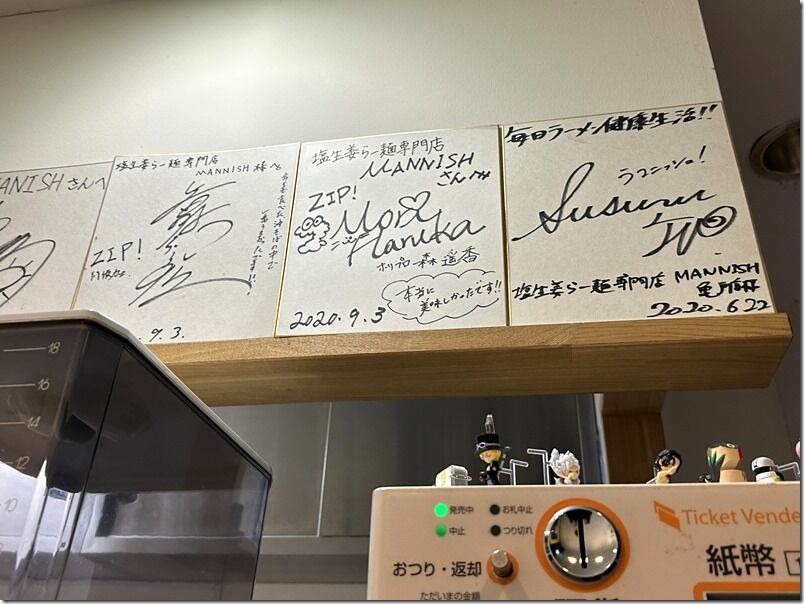 ANISHさんへ
塩生姜らー麺専門店
MANNISH 様へ
ZIP!
. 9. 3.
塩生姜らー麺専門店
MANNISH
さんへ
ZIP!
Mori
Haruka
ホリプロ 森 遥香
本当に
美味しかったです!!
2020. 9. 3
毎日ラーメン健康生活!!
Susuru
TV
塩生姜らー麺専門店 MANNISH
2020. 6. 22
18
16
14
12
10
8
発売中
お札中止
中止
つり切れ
おつり・返却
ただいまの金額
Ticket Vende
紙幣